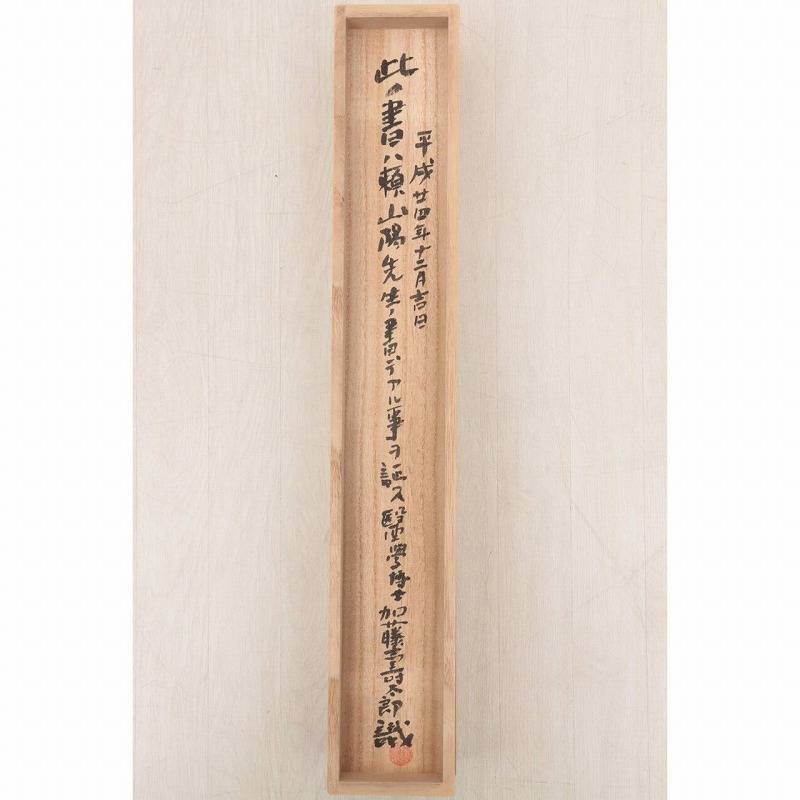 平成廿四年十二月吉日
此ノ書ハ頼山陽先生ノ書デアル事ヲ証ス 醫學博士 加藤壽太郎 識